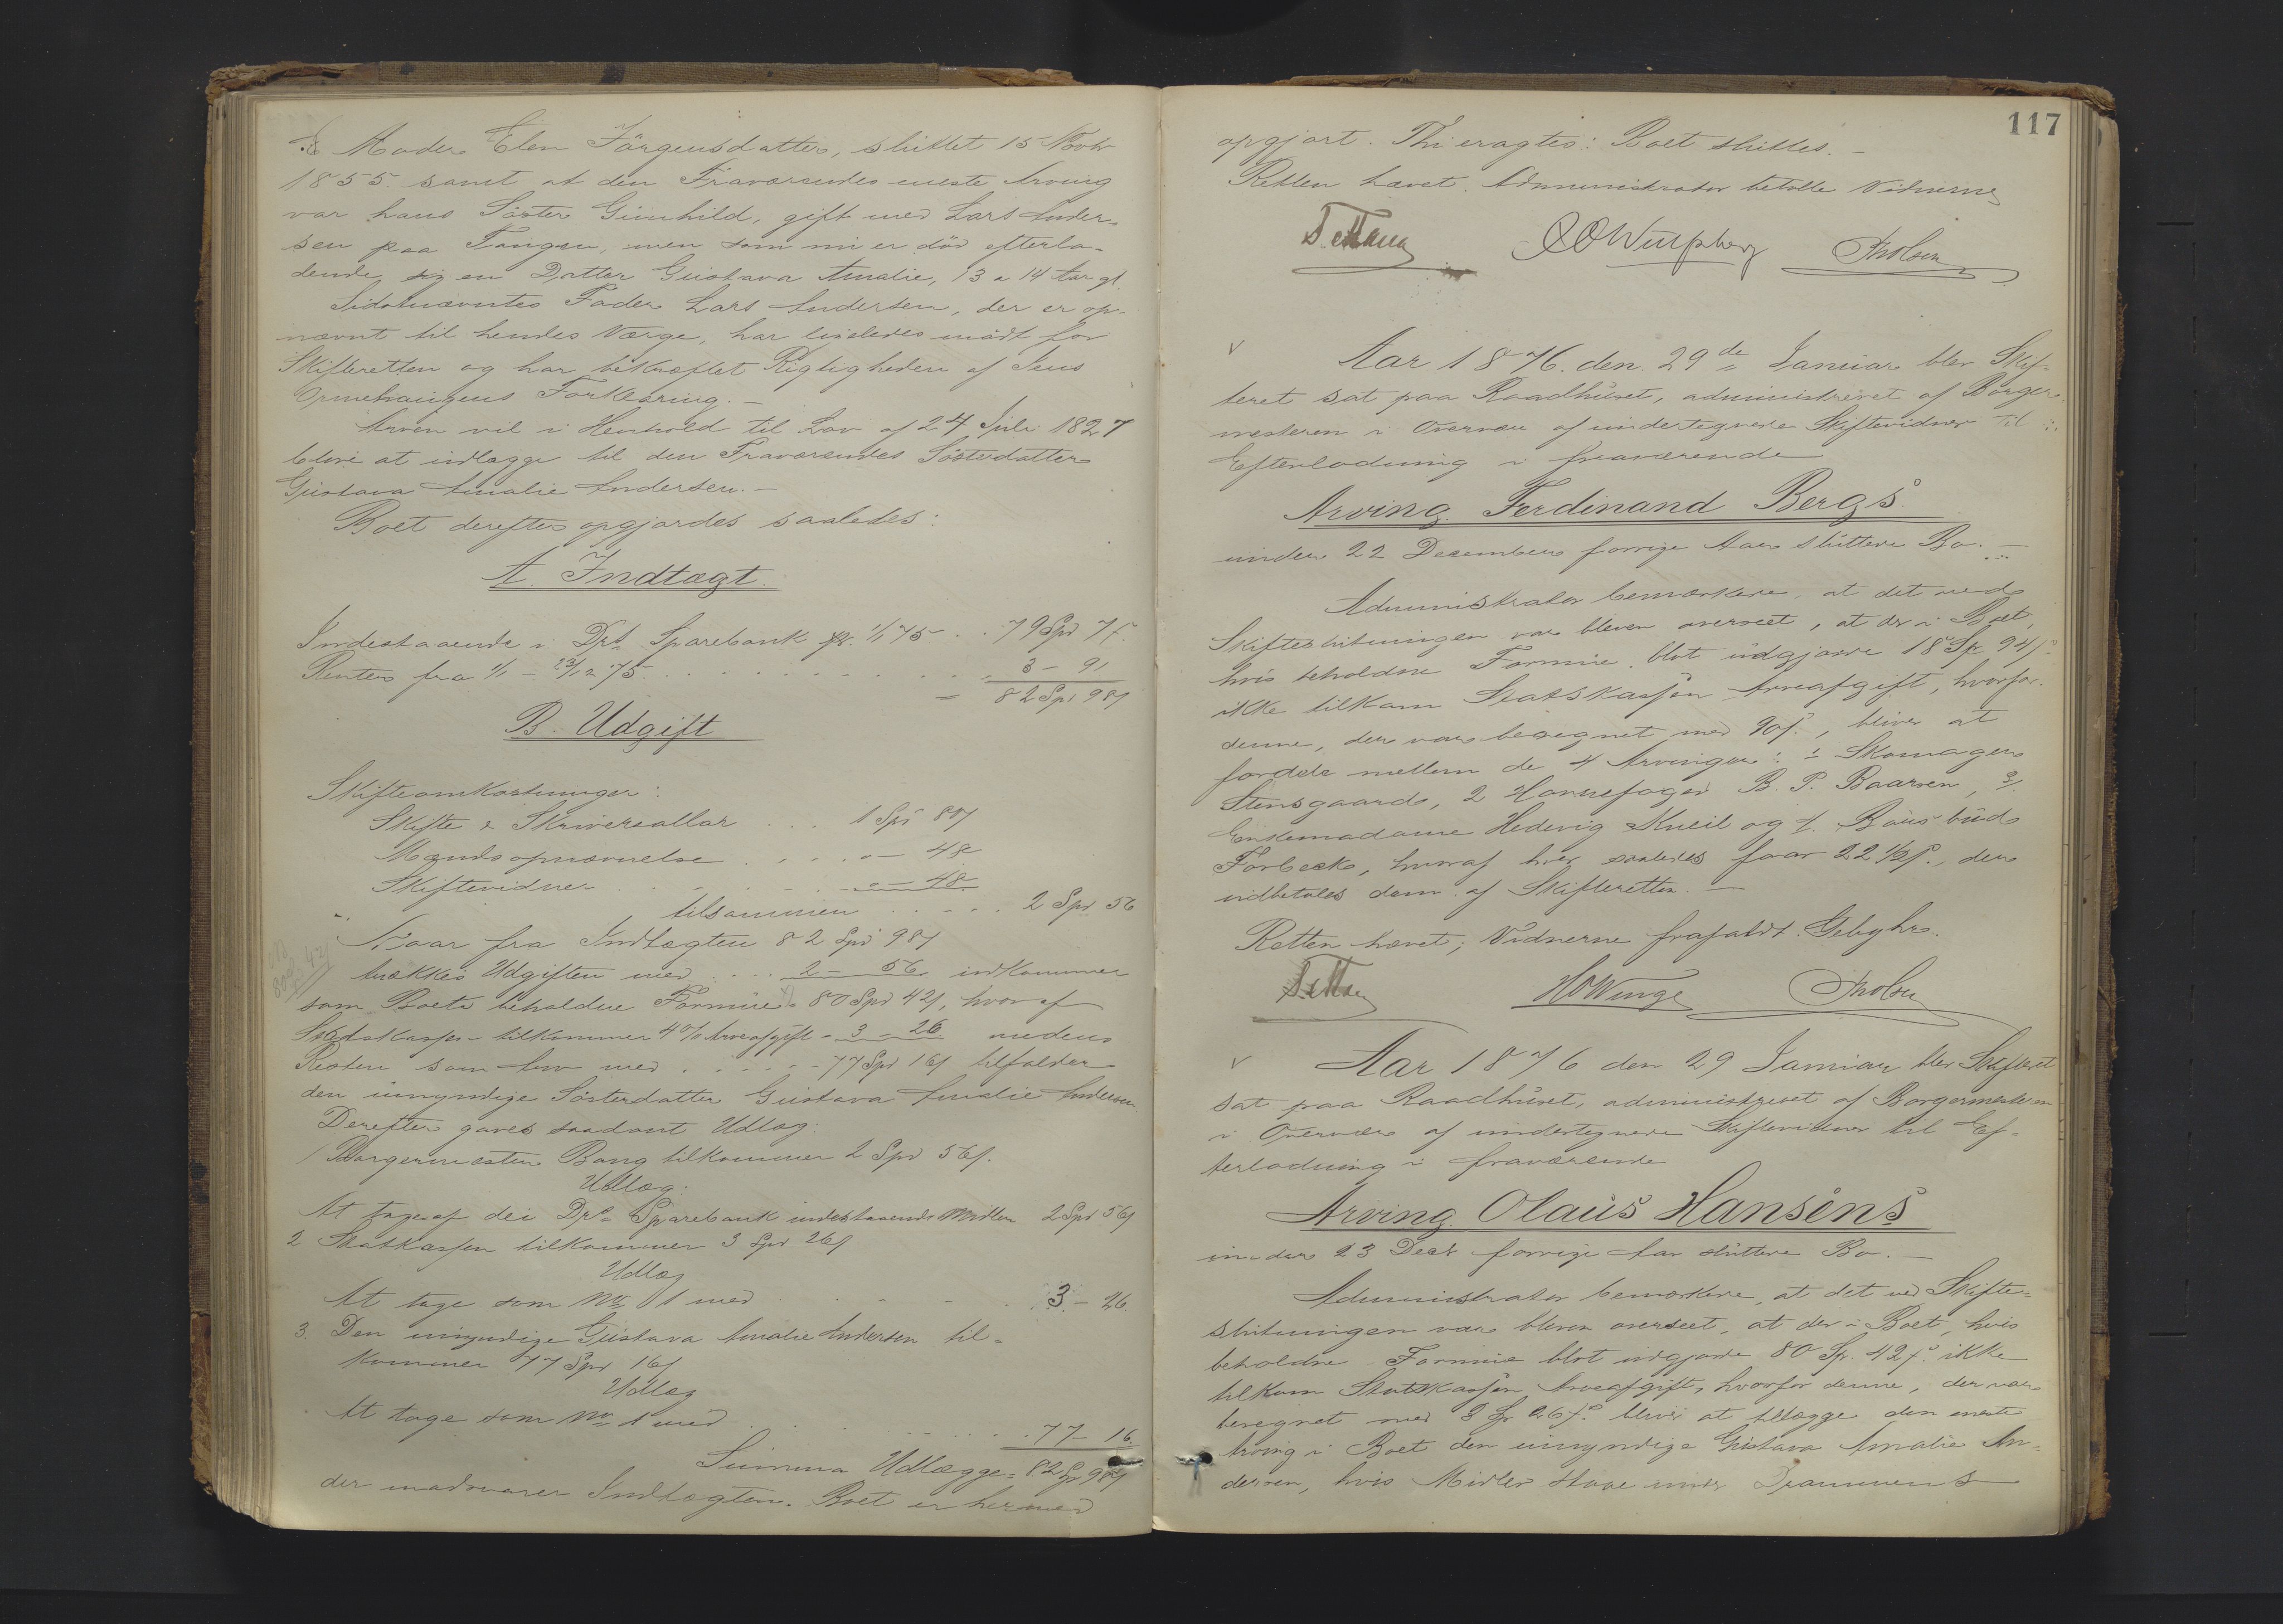 Moder Elen Jörgensdatter, sluttet 15 Novbr
1855. samt at den Fraværendes eneste Arving
var hans Söster Gunhild, gift med Lars Ander-
sen paa Tangen, men som nu er död efterla-
dende sig en Datter Gustava Amalie, 13 a 14 Aar gl.
Sidstnævntes Fader Lars Andersen, der er op-
nævnt til hendes Værge, har ligeledes mödt for
Skifteretten og har bekræftet Rigtigheden af Jens
Forklaring. -
Arven vil i Henhold til Lov af 24 Juli 1827
blive at udlægge til den Fraværendes Sösterdatter
Gustava Amalie Andersen. -
Boet derefter opgjordes saaledes:
A. Indtægt.
Indestaaende i Drs Sparebank pr. 1/1 75 . . 79 Spd 7 f.
Renter fra 1/1 - 23/12 75 . . . 3 - 91
= 82 Spd 98 f
B. Udgift
Skifteomkostninger:
Skifte & Skriversallar . . . 1 Spd 80 f
Mændsopnævnelse . . . . " - 48
Skiftevidner . . . . " - 48
tilsammen . . . . 2 Spd 56
Naar fra Indtægten 82 Spd 98 f
trækkes Udgiften med . . . 2 - 56 udkommer
som Boets beholdne Formue 80 Spd 42 f, hvoraf
Statskassen tilkommer 4 % Arveafgift - 3 - 26 medens
Resten som Arv med . . . . . 77 Spd 16 f tilfalder
den umyndige Sösterdatter Gustava Amalie Andersen
Derefter gaves saadant Udlæg:
1 Borgermester Bang tilkommer 2 Spd 56 f.
Udlæg.
At tage af de i Drs Sparebank indestaaende Midler 2 Spd 56 f
2 Statkassen tilkommer 3 Spd 26 f
Udlæg
At tage som No 1 med . . . . 3 - 26
3. Den umyndige Gustava Amalie Andersen til-
kommer 77 Spd 16 f
Udlæg
At tage som No 1 med . . . . 77 - 16.
Summa Udlægge = 82 Sp 98 f
der modsvarer Indtægten. Boet er hermed
117
opgjort. Thi eragtes: Boet sluttes. -
Retten hævet. Administrator betalte Vidnerne
Aar 1876. den 29de Januar blev Skif-
teret sat paa Raadhuset, administreret af Borger-
mesteren i Overvær af undertegnede Skiftevidner til
Efterlodning i fraværende
Arving Ferdinand Bergs
under 22 December forrige Aar sluttede Bo. -
Administrator bemærkede, at det ved
Skifteslutningen var bleven overseet, at der i Boet,
hvis beholdne Formue blot udgjorde 18 Sp 94 f.
ikke tilkom Statskassen Arveafgift, hvorfor
denne, der var beregnet med 90 f., bliver at
fordele mellem de 4 Arvinger: 1 Skomager
Stensgaard, 2 B. P. Baarsen, 3
Enkemadame Hedevig og 4. Böis bud
Forbeck, hvoraf hver saaledes faar 22 1/2 f., der
udbetales dem af Skifteretten. -
Retten hævet; Vidnerne frafaldt Gebyhr.
HOWinge
Aar 1876 den 29 Januar blev Skifteret
sat paa Raadhuset, administreret af Borgermesteren
i Overvær af undertegnede Skiftevidner til Ef-
terlodning i fraværende
Arving Olaus Hansens
under 23 Decbr forrige Aar sluttede Bo. -
Administrator bemærkede, at det ved Skifte-
slutningen var bleven overseet, at der i Boet, hvis
beholdne Formue blot udgjorde 80 Sp. 42 f. ikke
tilkom Statskassen Arveafgift, hvorfor denne, der var
beregnet med 3 Sp 26 f. bliver at tillægge den eneste
Arving i Boet den umyndige Gustava Amalie An-
dersen, hvis Midler staae under Drammens